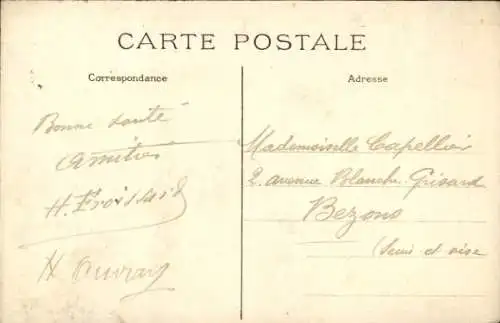 CARTE POSTALE
Correspondance
Bonne santé
Amitiés
H. Froissard
H
Adresse
Mademoiselle Capellier
2. avenue Blanche. Guisard
Bezons
(Seine et oise